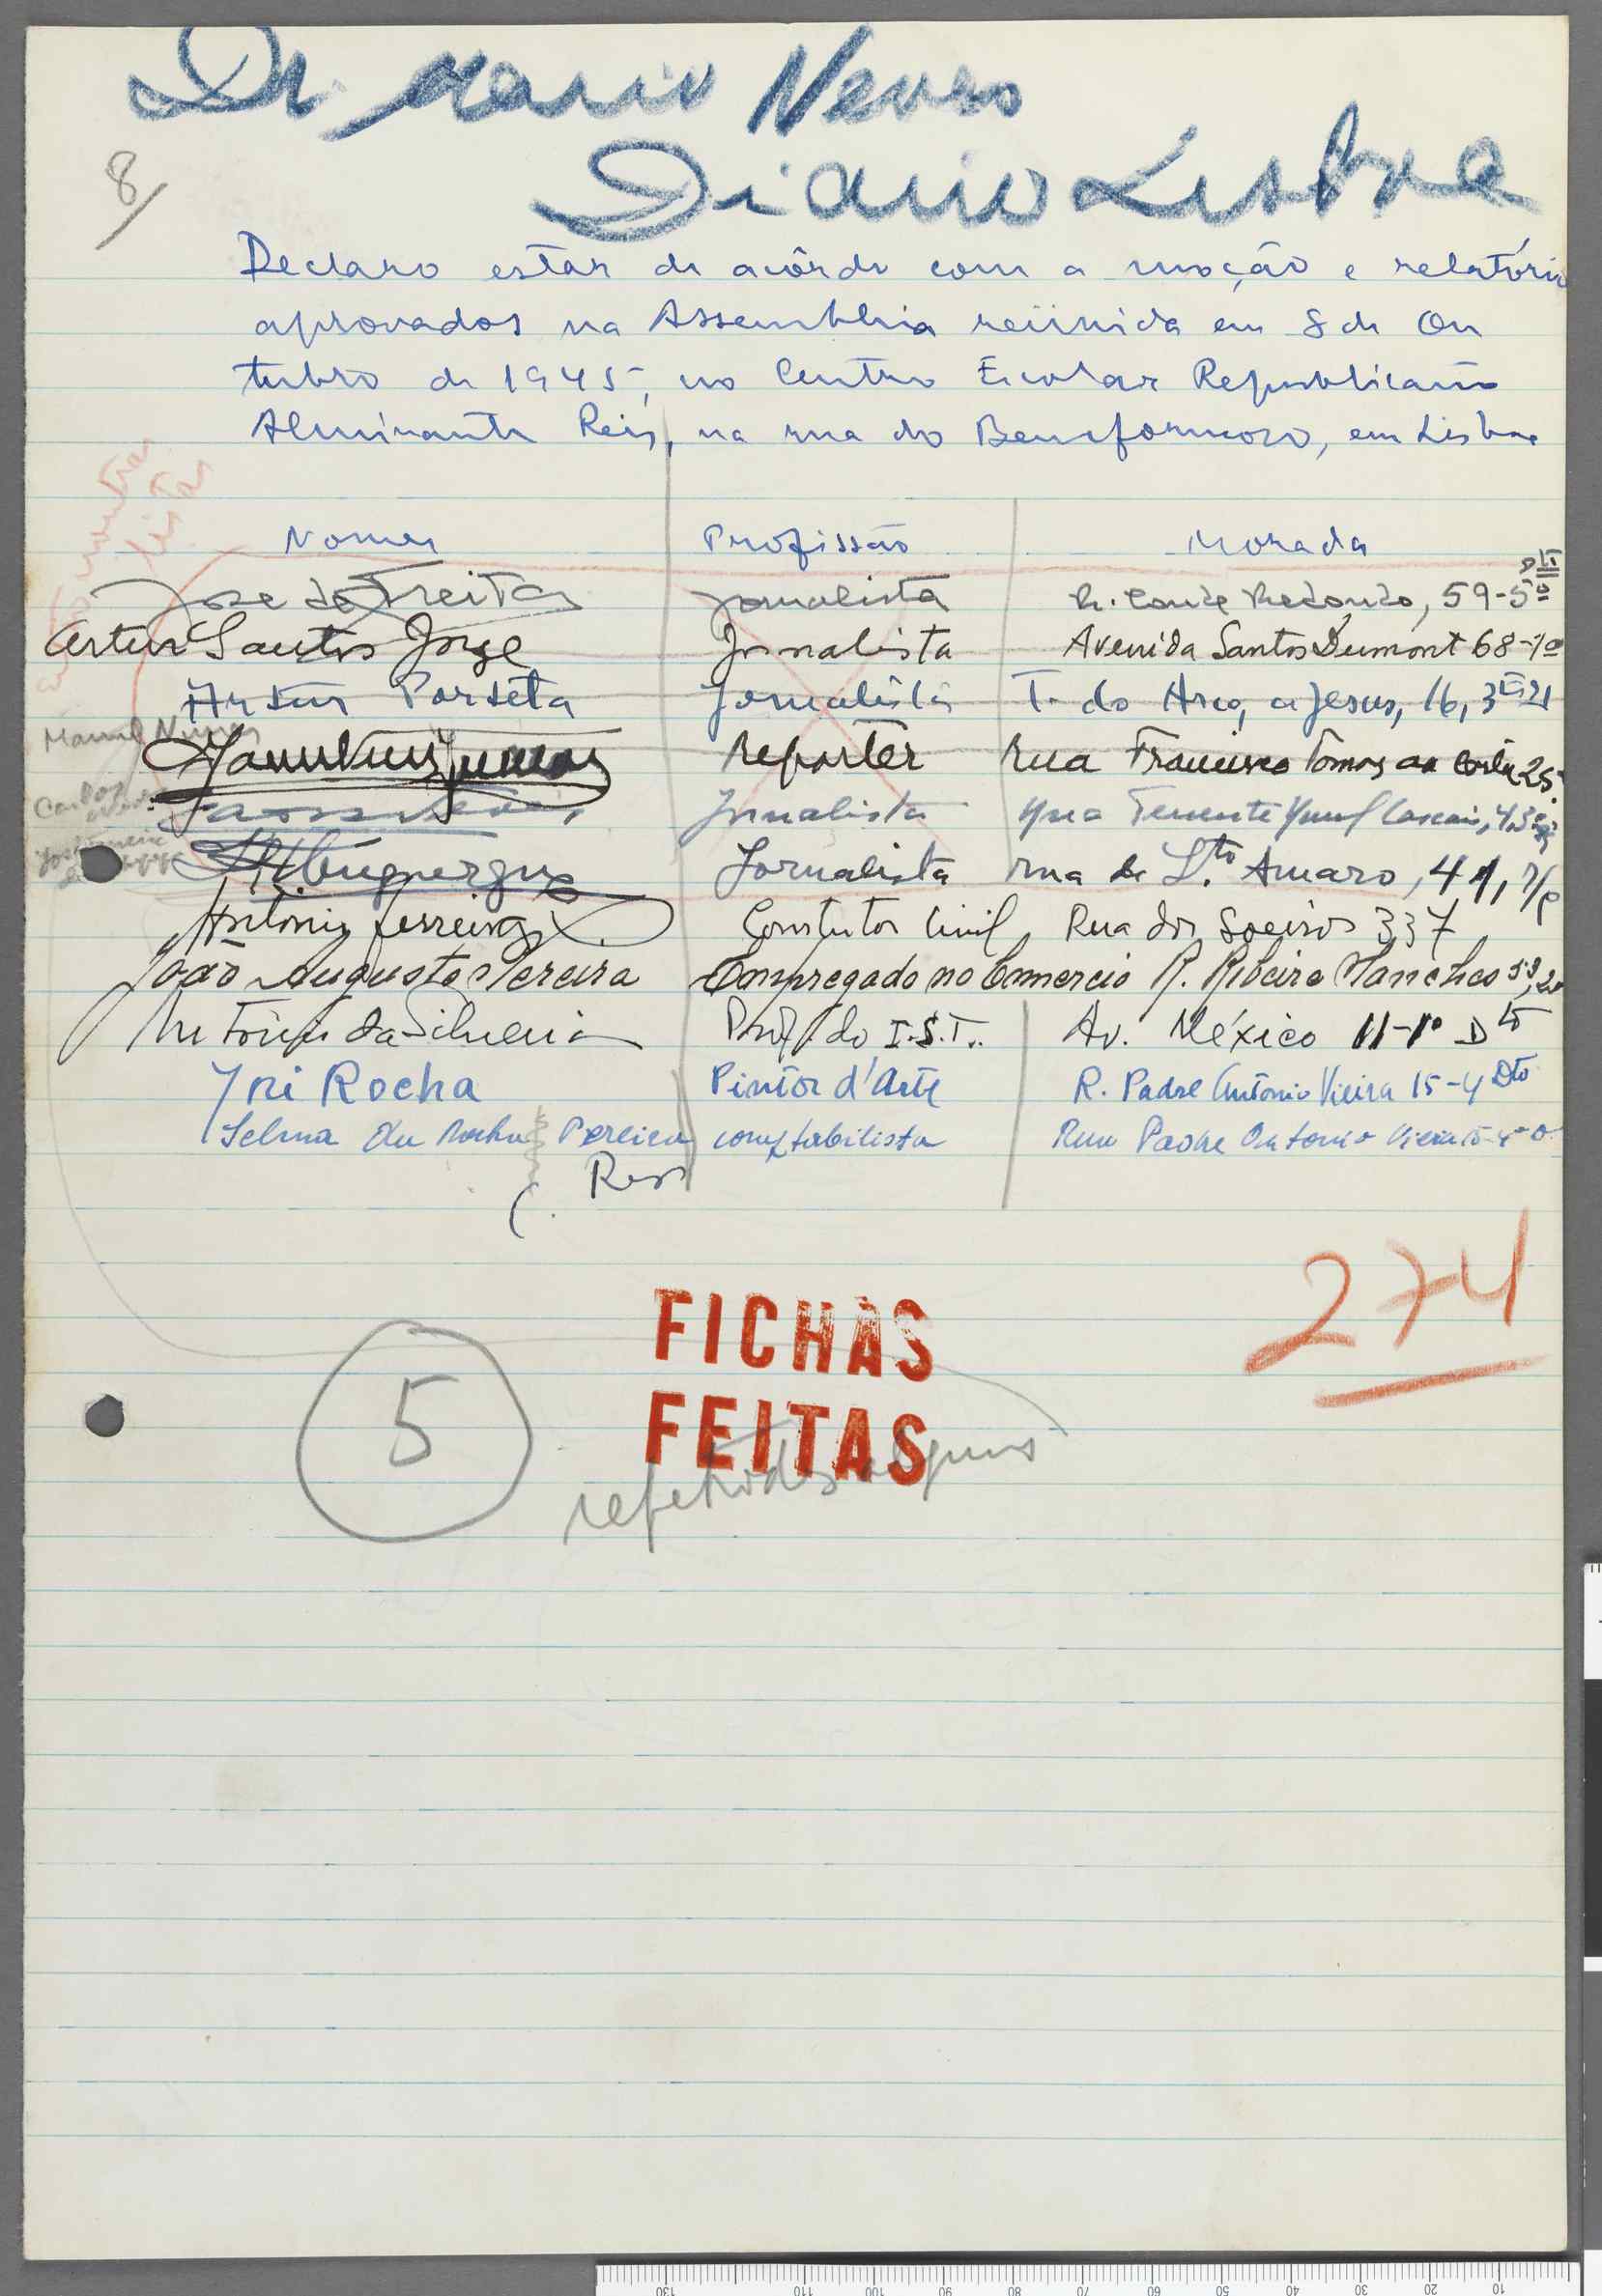 Dr. Mario Neves
Diario Lisboa
8/
Declaro estar de acôrdo com a moção e relatório
aprovados na Assembleia reünida em 8 de Ou
tubro de 1945, no Centro Escolar Republicano
Almirante Reis, na rua do Benformoso, em Lisboa
listas
Nomes Profissão Morada
José de Freitas Jornalista R. Conde Redondo, 59-5º Dto
Artur Santos Jorge Jornalista Avenida Santos Dumont 68-1º
Artur Portela Jornalista T. do Arco, a Jesus, 16, 3
Manuel Nunes
Reporter Rua Francisco Tomás da Costa 25
Carlos
Jornalista Tenente
Albuquerque Jornalista rua de Sto. Amaro, 41, r/c
António Ferreira Construtor Civil Rua dos Soeiros 337
João Augusto Pereira Empregado no Comercio R. Ribeiro Sanches
da Silveira Prof. do I.S.T. Av. México 11-1º Dto
Rocha Pintor d'Arte R. Padre António Vieira 15-4 Dto
Selma da Rocha Pereira comptabilista Rua Padre Antonio Vieira 15-4º D
274
FICHAS
FEITAS
5
repetidos alguns